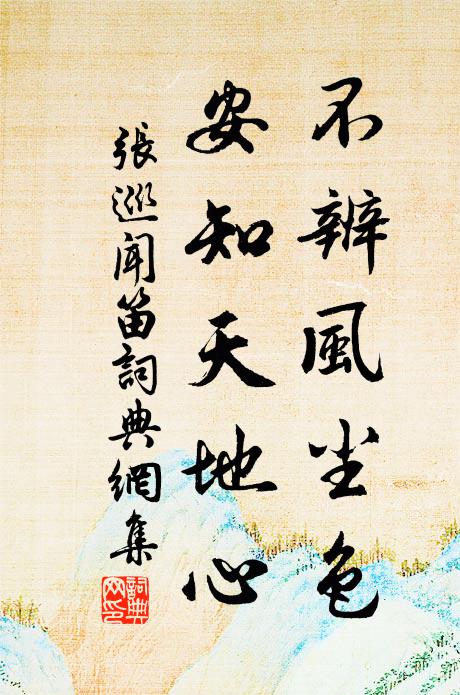 不辨風尘色
安知天地心
張巡聞笛詞典網集
詞典
网印